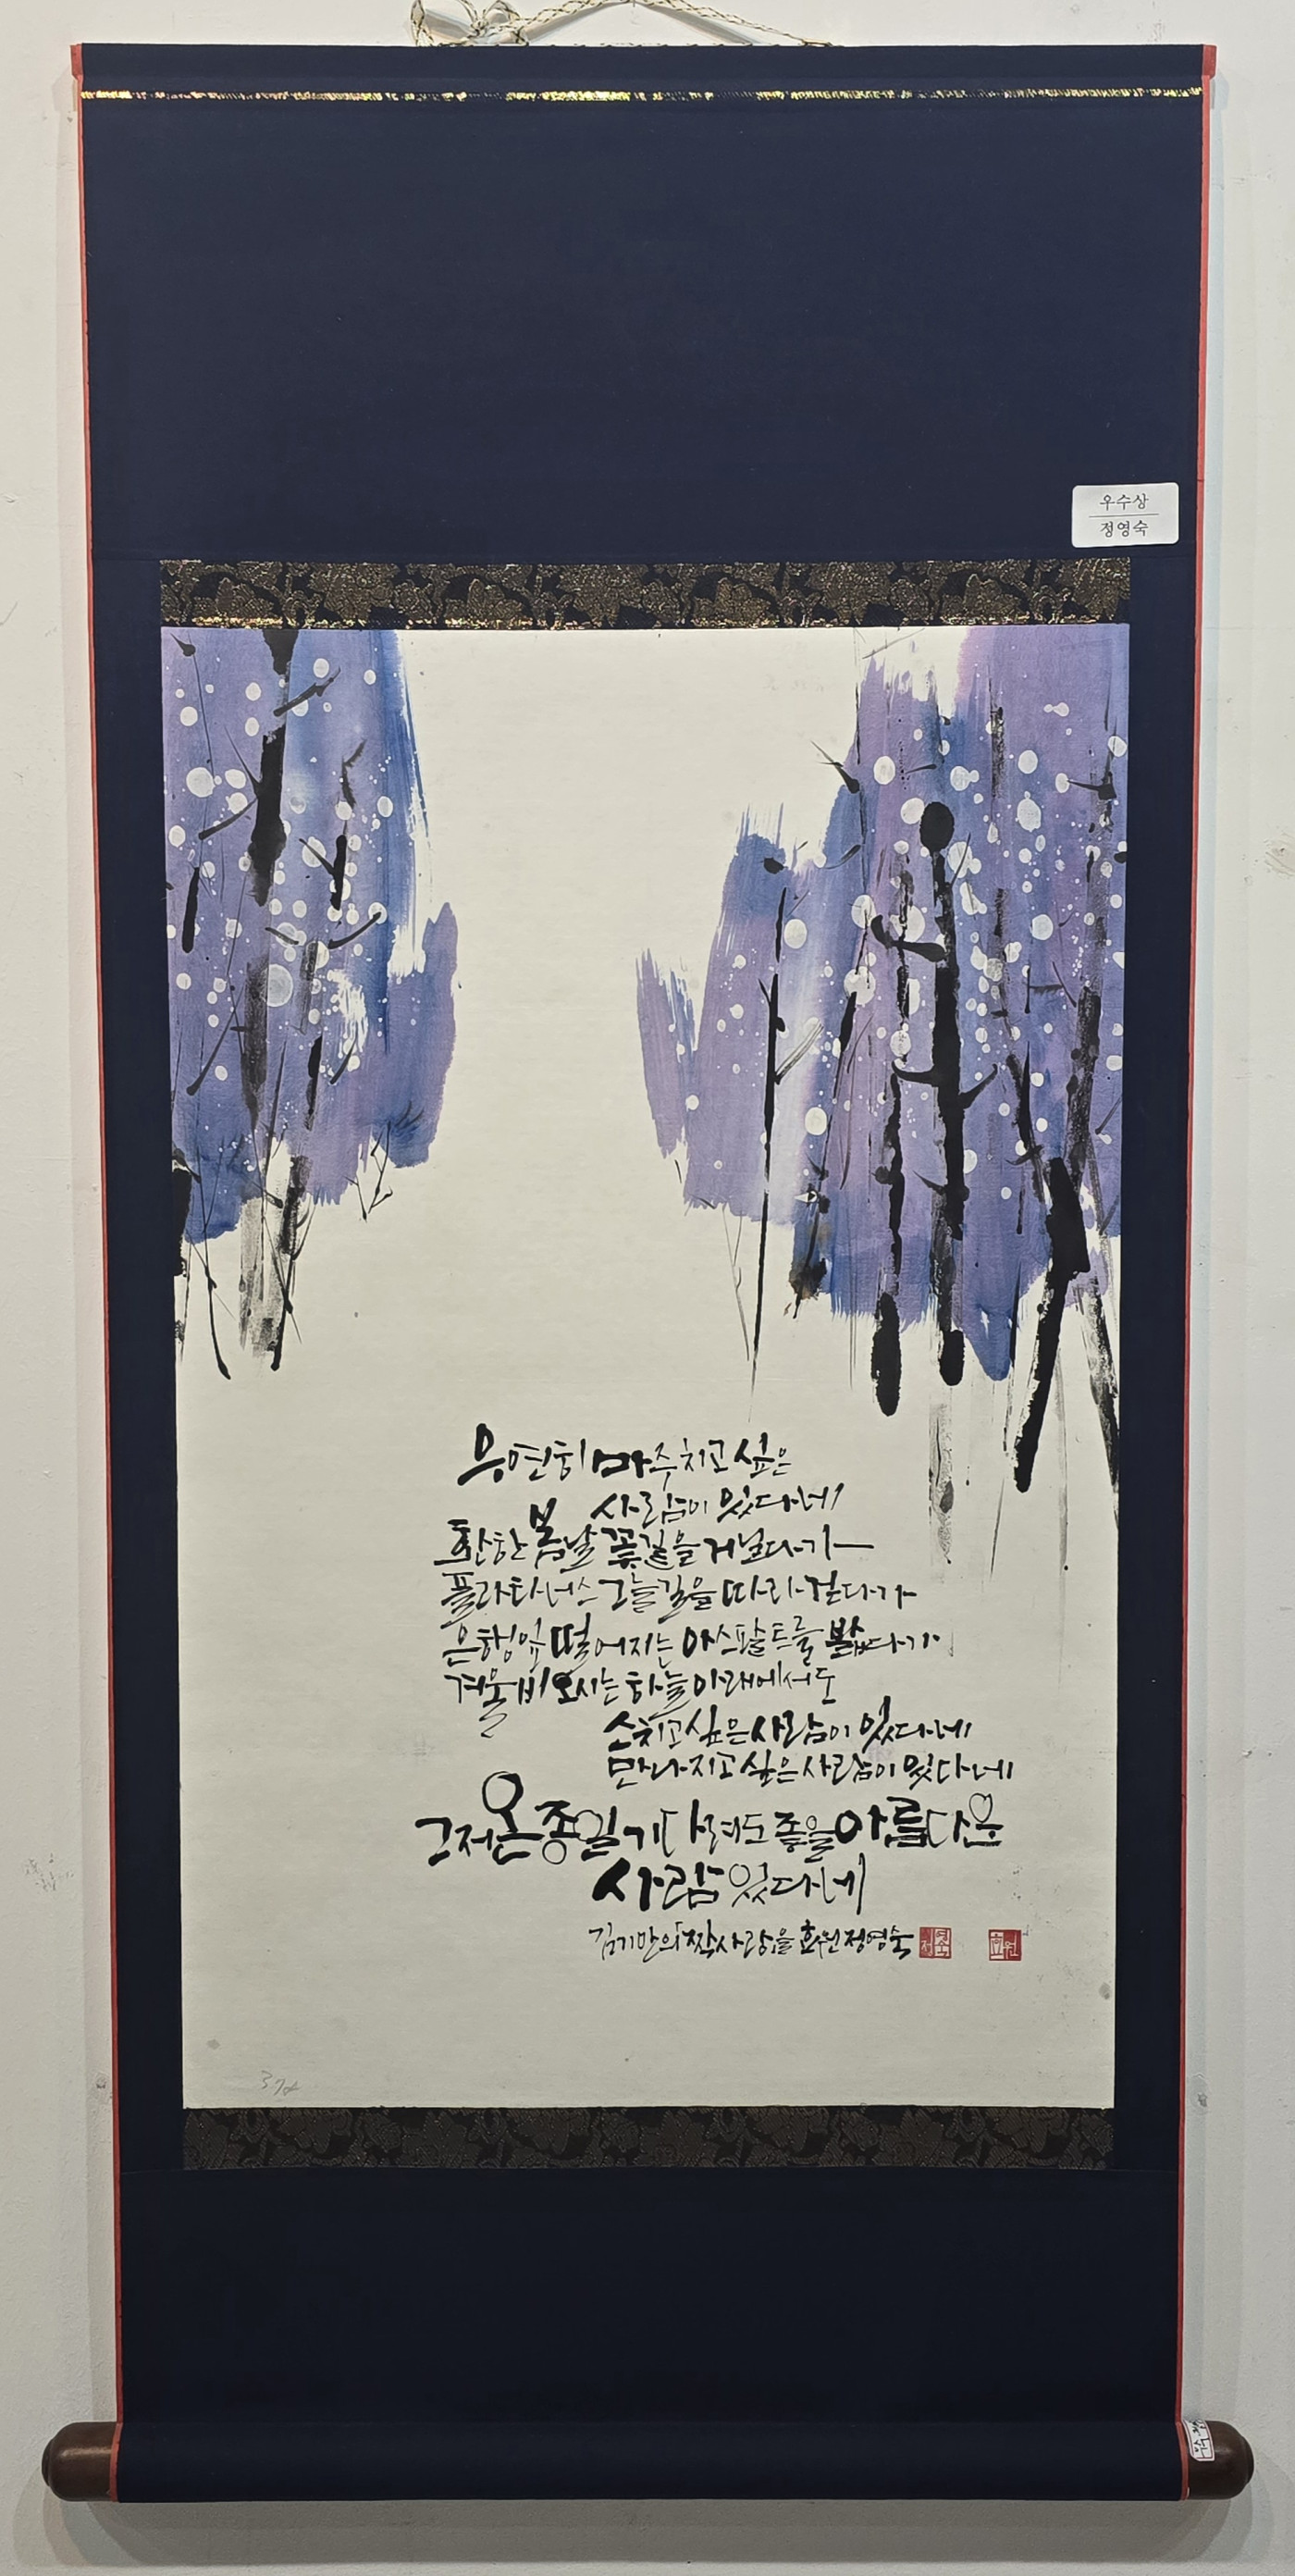 우수상
정영숙
우연히 마주치고 싶은
사람이 있다네
환한 봄날 꽃길을 거닐다가
플라타너스 그늘길을 따라 걷다가
은행잎 떨어지는 아스팔트를 밟다가
겨울비 오시는 하늘 아래에서도
스치고 싶은 사람이 있다네
만나지고 싶은 사람이 있다네
그저 온종일 기다려도 좋을 아름다운
사람 있다네
김기만의「짝사랑」을 효원 정영숙